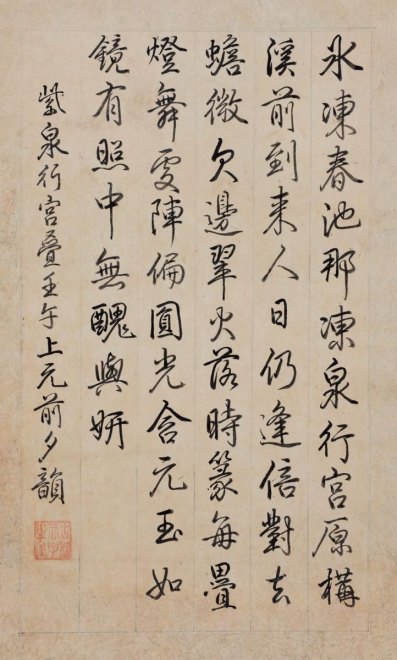 氷凍春池那凍泉行宮原構
溪前到来人日仍逢倍對去
蟾微欠邊翠火落時篆每疊
燈舞陣偏圓光含元玉如
鏡有照中無醜與妍
紫泉行宮疊壬午上元前夕韻